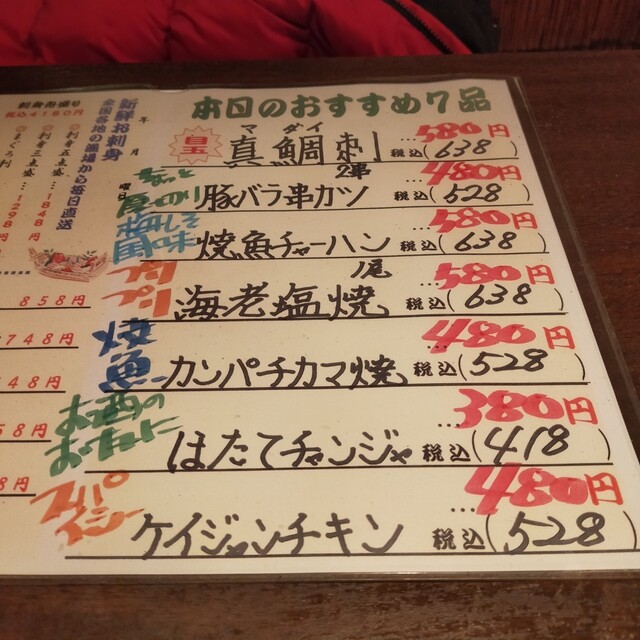 本日のおすすめ7品
目玉
マダイ
真鯛刺
…580円
税込(638)
2串
豚バラ串カツ
480円
税込(528)
焼魚チャーハン
…580円
税込(638)
プリプリ
1尾
海老塩焼
…580円
税込(638)
焼魚
カンパチカマ焼
…480円
税込(528)
お酒のおともに
はたてチャンジャ
…380円
税込(418)
スパイシー
ケイジャンチキン
…480円
税込(528)
新鮮お刺身
全国各地の漁場から毎日直送
年
月
曜日
刺身舟盛り
税込4180円
858円
748円
48円
58円
8円